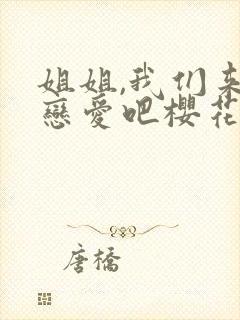 姐姐,我们来
戀愛吧櫻花
唐橋